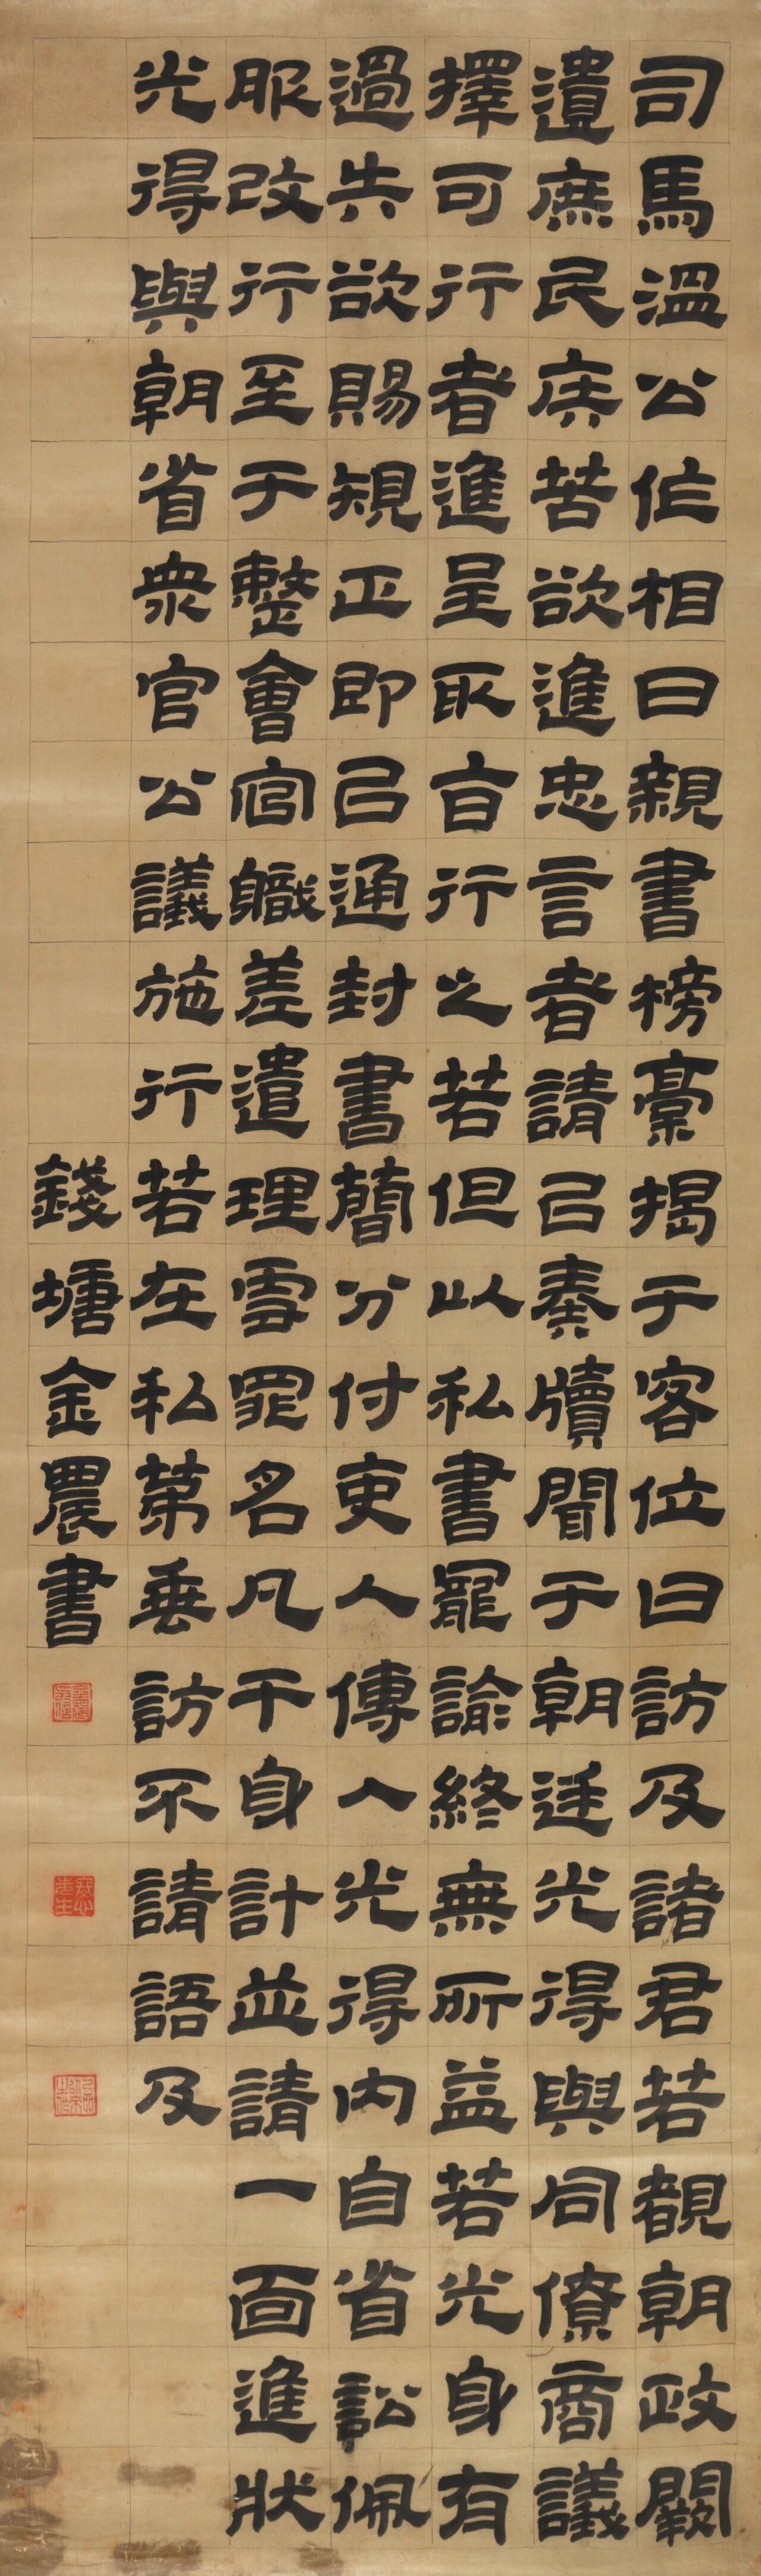 司馬溫公作相日親書榜稾揭于客位曰訪及諸君若覩朝政闕
遺庶民疾苦欲進忠言者請以奏牘聞于朝廷光得與同僚商議
擇可行者進呈取旨行之若但以私書寵諭終無所益若光身有
過失欲賜規正即以通封書簡分付吏人傳入光得內自省訟佩
服改行至于整會官職差遣理雪罪名凡干身計並請一面進狀
光得與朝省衆官公議施行若在私第垂訪不請語及
錢塘金農書
冬心先生